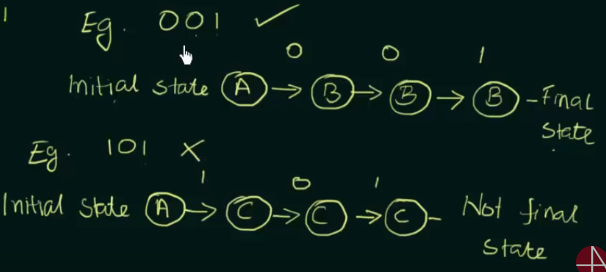 1
Eg. 001 ✓
0 0 1
Initial state A → B → B → B - Final state
Eg. 101 X
1 0 1
Initial state A → C → C → C - Not final state